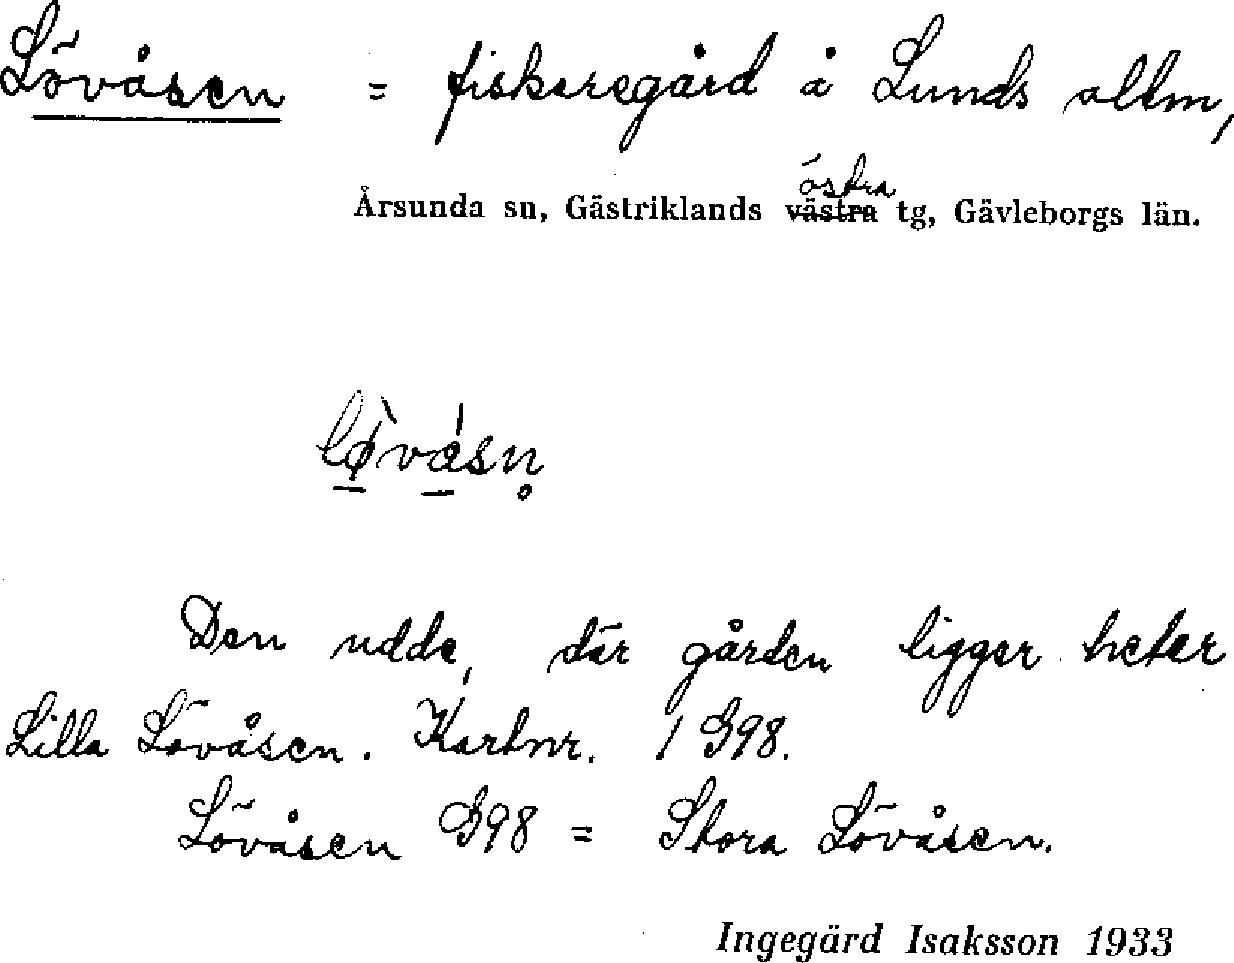 Lövåsen = fiskaregård å Lunds allm,
Årsunda sn, Gästriklands västra östra tg, Gävleborgs län.
lø̀våsn̥
Den udde, där gården ligger heter
Lilla Lövåsen. Kartnr. 1 G98.
Lövåsen G98 = Stora Lövåsen.
Ingegärd Isaksson 1933